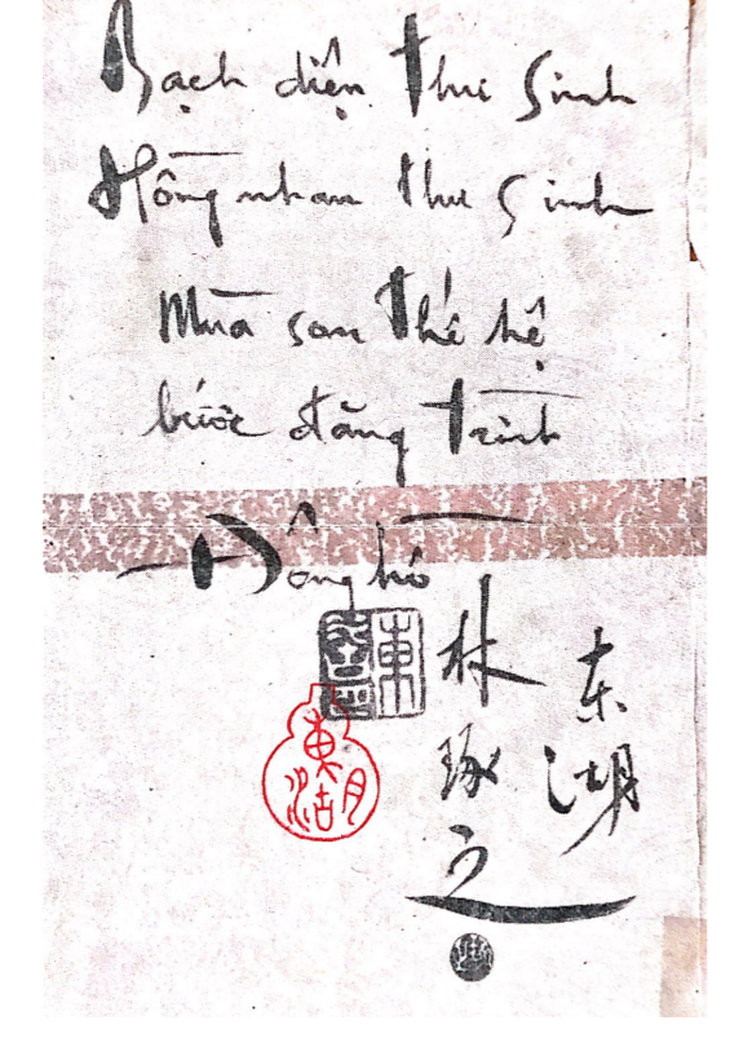 Bạch diện thư sinh
Hồng nhan thư sinh
Mùa sau thế hệ
bước đăng trình
Đông hồ
东湖
林琢之
東
東湖